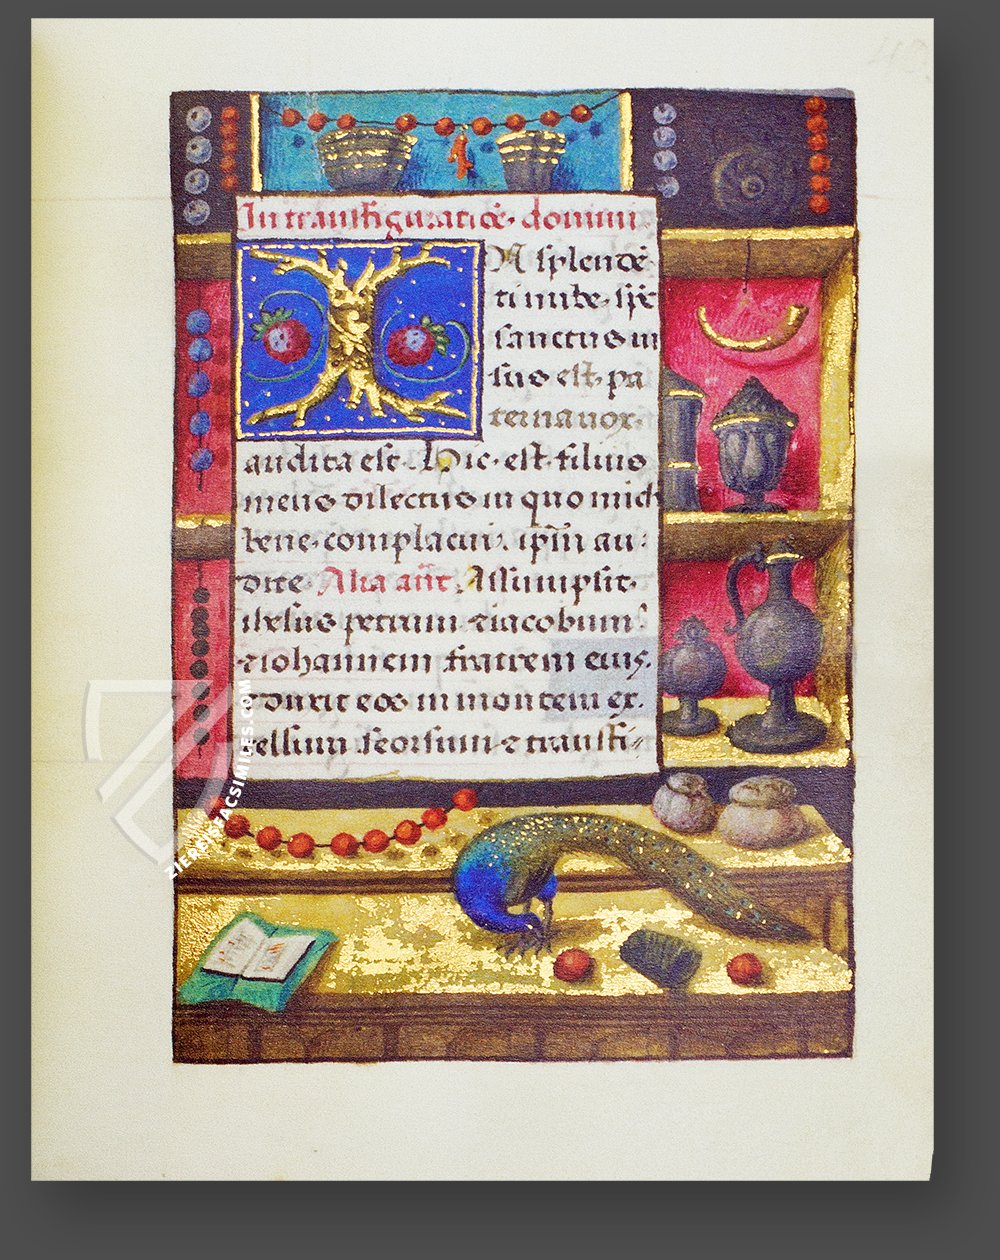 In transfiguratiōe · domini
IN splendē
ti nube · sp̄c
sanctus ui
sus est · pa
terna uox ·
audita est · Hic · est · filius
meus dilectus in quo mich
bene · complacui · ip̄m au-
dite · Alia añt · Assumpsit ·
ihesus petrum · ⁊ iacobum
⁊ iohannem fratrem eius ·
⁊ duxit eos in montem ex-
cellsum · seorsum · ⁊ transfi-
ZIEREIS FACSIMILES.COM